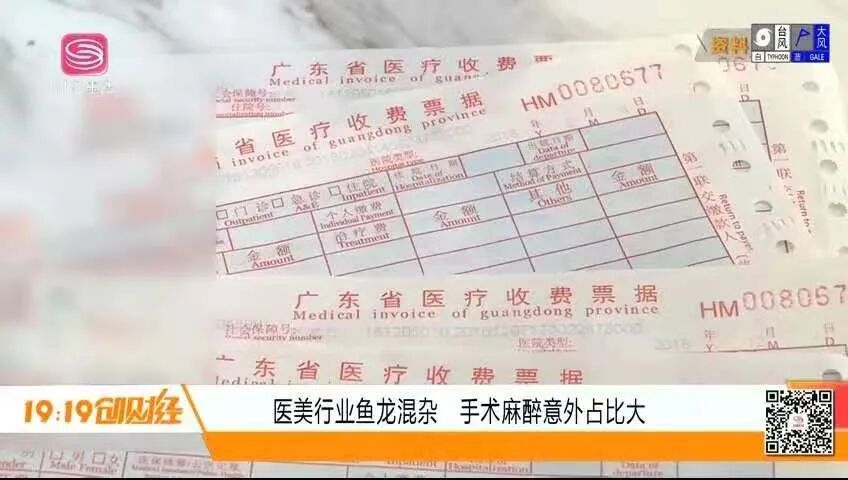 资料
台风
白 TYPHOON
大风
蓝 GALE
广东省医疗收费票据
Medical invoice of guang
HM0080677
省医疗收费票据
invoice of guangdong province
医院类型:
年 月 日
Y M D
门诊 急诊 住院
Outpatient A&E Inpatient
住院日期
Date of Hospitalization
出院日期
Date of departure
个人缴费
Individual Payment
金额
Amount
结算方式
Method of Payment
治疗费
Treatment
金额
Amount
其他
Others
金额
Amount
第一联交缴款人
广东省医疗收费票据
Medical invoice of guangdong province
HM008067
社会保障号:
security number
医院类型:
年
Y M D
广东省医疗收费票据
Medical invoice of guangdong province
19:19创财经
医美行业鱼龙混杂 手术麻醉意外占比大
男 女
Male Female
Hospitalization
departure